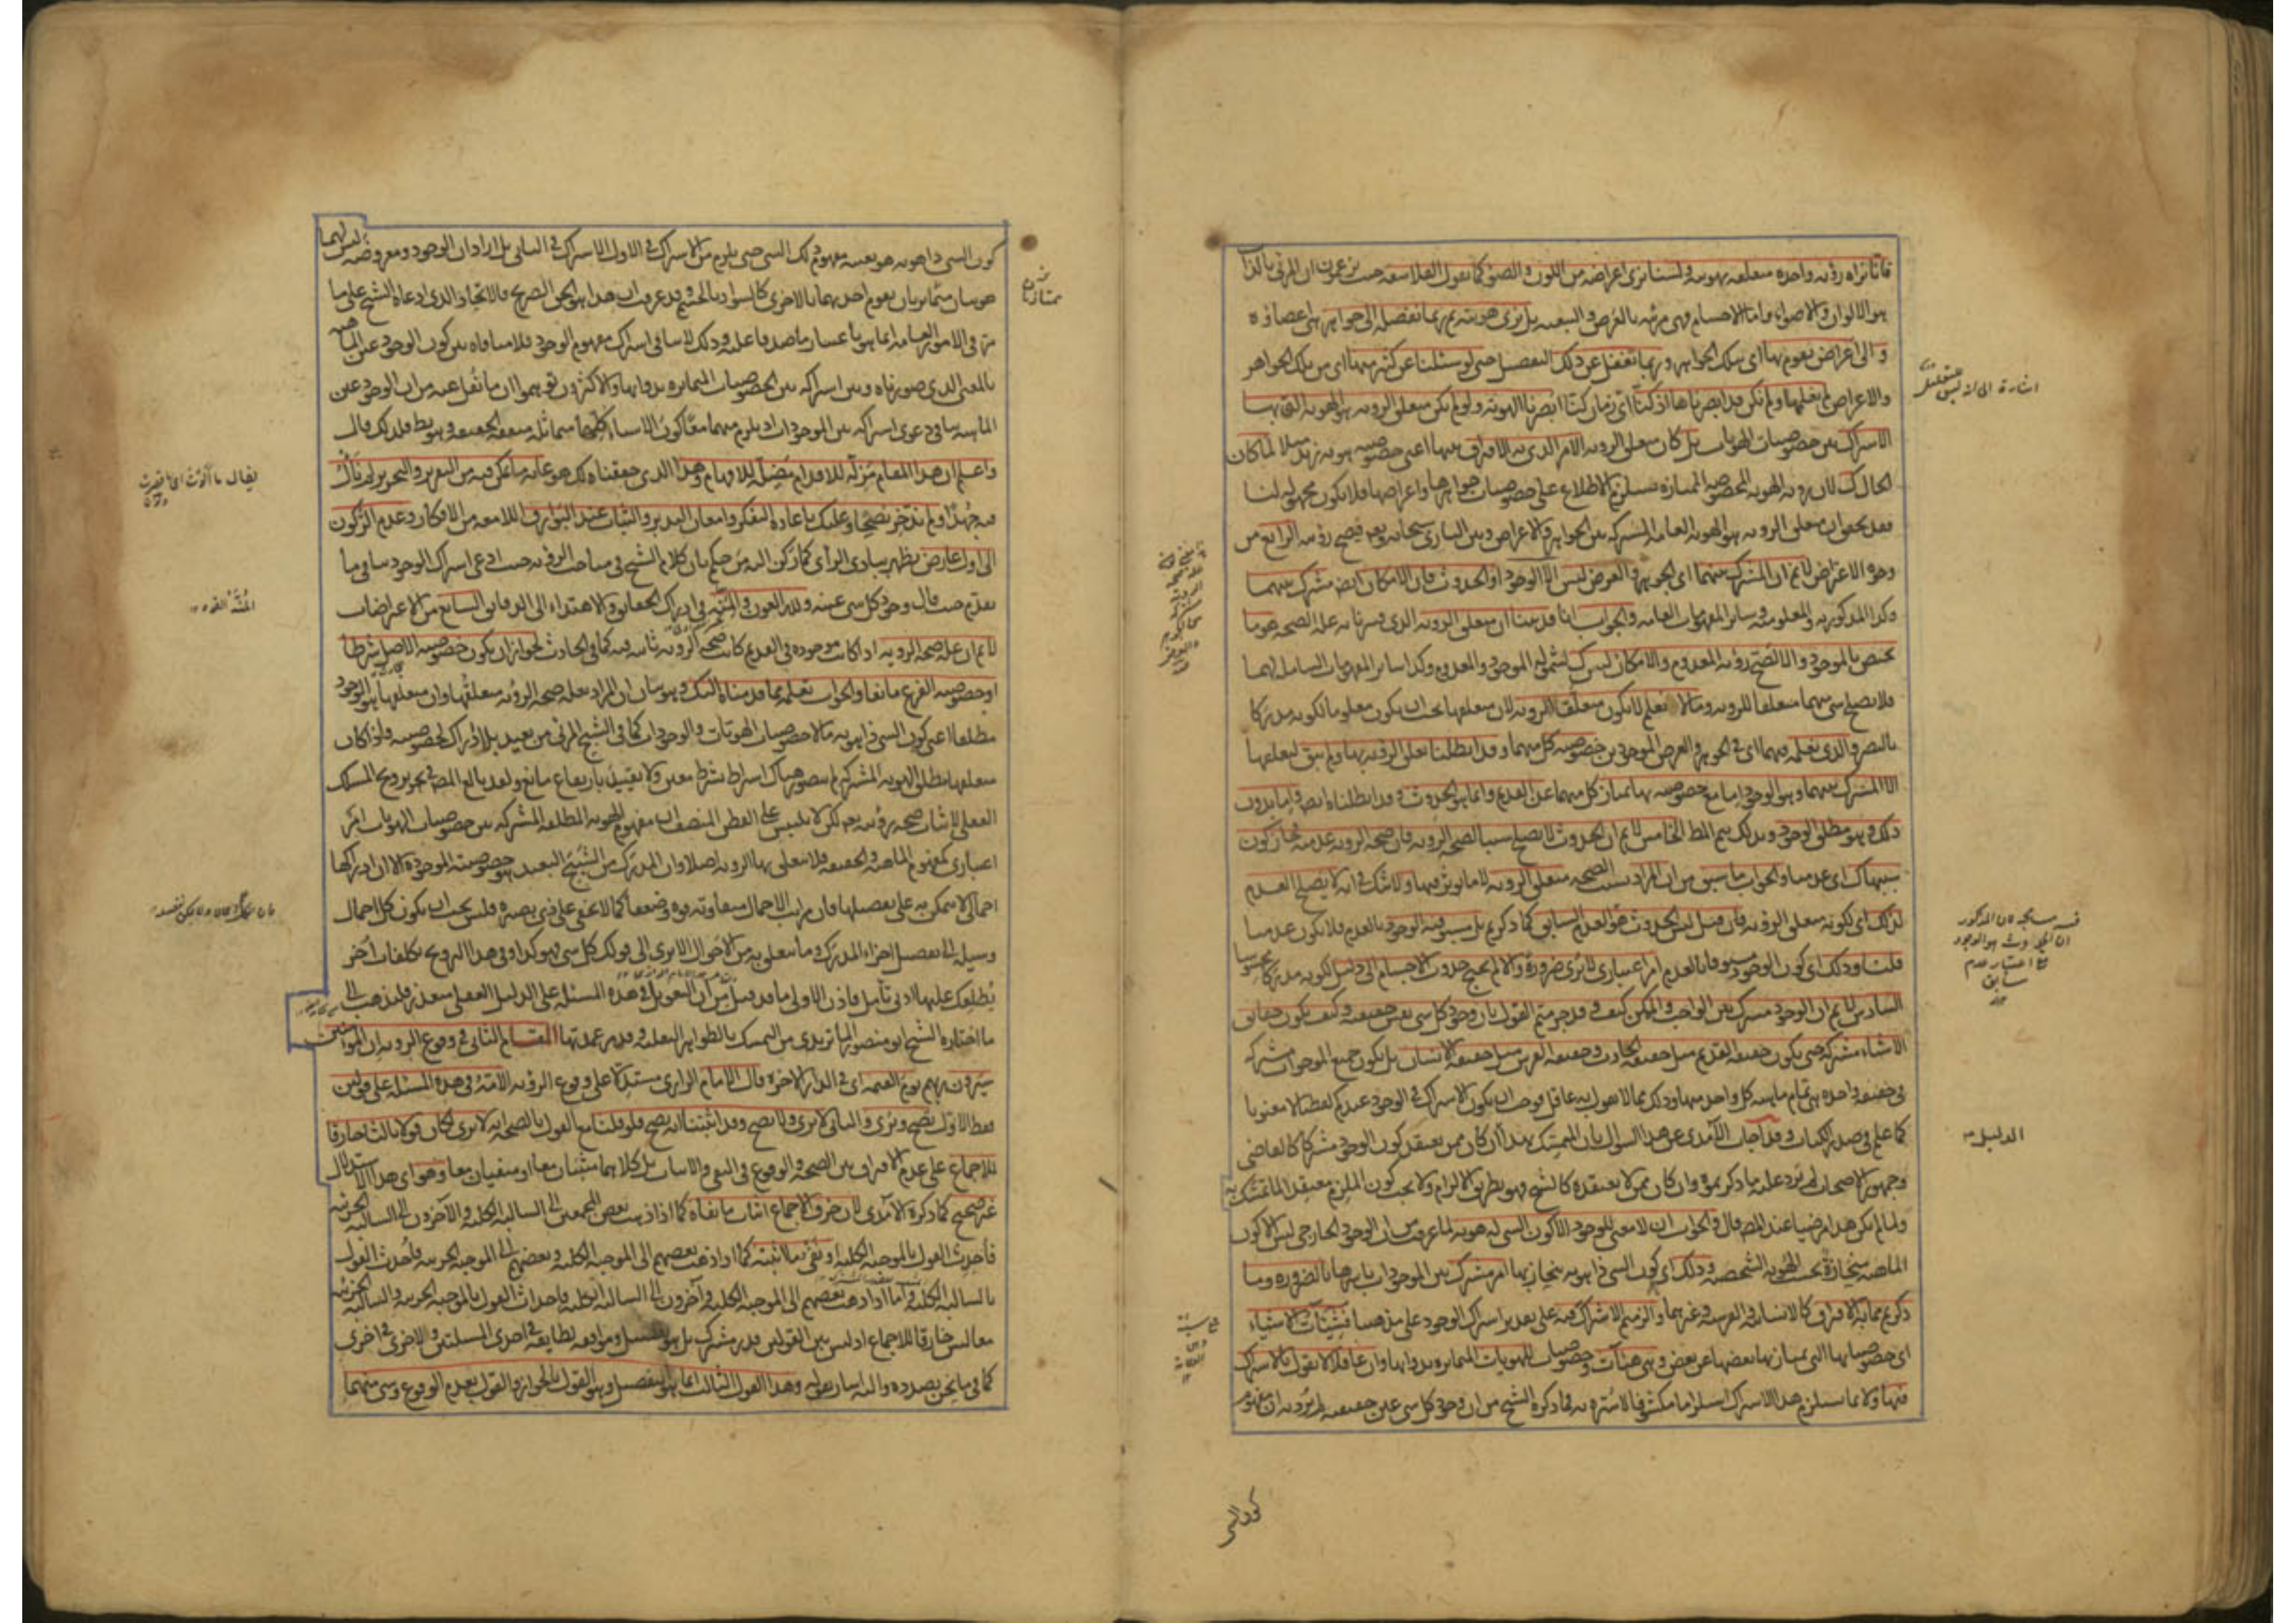 فانا نراه رؤية واحدة متعلقة بهويته ولسنا نرى اعراضه من اللون والضوء كما يقول الفلاسفة حيث يزعمون ان المرئي بالذات
هو الالوان والاضواء واما الاجسام فهي مرئية بالعرض والتبعية بل نرى هويته ثم ربما نفصله الى جواهر هي اعضاؤه
والى اعراض تقوم بها اي بتلك الجواهر وربما نغفل عن ذلك التفصيل حتى لو سئلنا عن كثير منها اي من تلك الجواهر
والاعراض لم نعلمها ولم نكن قد ابصرناها اذ كنا اي زمان كنا ابصرنا الهوية ولو لم يكن متعلق الرؤية هو الهوية التي بها
الاشتراك بين خصوصيات الهويات بل كان متعلق الرؤية الامر الذي به الافتراق بينها اعني خصوصية هوية زيد مثلا لما كان
الحال كذلك لان رؤية الهوية المخصوصة الممتازة تستلزم الاطلاع على خصوصيات جواهرها واعراضها فلا يكون مجهولة لنا
فقد تحقق ان متعلق الرؤية هو الهوية العامة المشتركة بين الجواهر والاعراض وبين الباري سبحانه وتعالى فيصح رؤيته الرابع من
وجوه الاعتراض لا نم ان المشترك بينهما اي الجوهر والعرض ليس الا الوجود او الحدوث فان الامكان ايضا مشترك بينهما
وكذا المذكورية والمعلومية وسائر المفهومات العامة والجواب انا قد بينا ان متعلق الرؤية الذي فسرنا به علة الصحة هو ما
يختص بالموجود والا لصح رؤية المعدوم والامكان ليس كذلك لشموله الموجود والمعدوم وكذا سائر المفهومات الشاملة لهما
فلا يصلح شيء منهما متعلقا للرؤية وما لا نعلم لا يكون متعلق الرؤية لان متعلقها يجب ان يكون معلوما لكونه مدركا
بالبصر والذي نعلمه فيهما اي في الجوهر والعرض الموجودين خصوصية كل منهما وقد ابطلنا تعلق الرؤية بها ولم يبق لتعلقها
الا المشترك بينهما وهو الوجود اما مع خصوصية بها يمتاز كل منهما عن القديم وانما هو الحدوث وقد ابطلناه ايضا واما بدون
ذلك وهو مطلق الوجود وبذلك يتم المط الخامس لا نم ان الحدوث لا يصلح سببا لصحة الرؤية فان صحة الرؤية عدمية فجاز كون
سببها كذلك اي عدميا والجواب ما سبق من ان المراد بسبب الصحة متعلق الرؤية لا ما يؤثر فيها ولا شك في انه لا يصلح العدم
لذلك اي لكونه متعلق الرؤية فان قيل ليس الحدوث هو العدم السابق كما ذكرتم بل مسبوقية الوجود بالعدم فلا يكون عدميا
قلنا وذلك اي كون الوجود مسبوقا بالعدم امر اعتباري لا يرى ضرورة والا لم يحتج حدوث الاجسام الى دليل لكونه مدركا محسوسا
السادس لا نم ان الوجود مشترك بين الواجب والممكن كيف وقد جزمتم القول بان وجود كل شيء نفس حقيقته وكيف يكون حقائق
الاشياء مشتركة حتى يكون حقيقة القديم مثل حقيقة الحادث وحقيقة الفرس مثل حقيقة الانسان بل يكون جميع الموجودات مشتركة
في حقيقة واحدة هي تمام ماهية كل واحد منها وذلك مما لا يقول به عاقل فوجب ان يكون الاشتراك في الوجود عندكم لفظيا لا معنويا
كما علم في صدر الكتاب وقد اجاب الآمدي عن هذا السؤال بان المتمسك بهذا ان كان ممن يعتقد كون الوجود مشتركا كالقاضي
وجمهور الاصحاب لم يرد عليه ما ذكرتموه وان كان ممن لا يعتقده كالشيخ فهو بطريق الالزام ولا يجب كون الملزم معتقدا لما تمسك به
ولما لم يكن هذا مرضيا عند المص قال والجواب ان لا معنى للوجود الا كون الشيء له هوية لما عرفت من ان الوجود الخارجي ليس الا كون
الماهية منحازة بحسب الهوية الشخصية وذلك اي كون الشيء ذا هوية ينحاز بها امر مشترك بين الموجودات باسرها بالضرورة وما
ذكرتم مما به الافتراق كالانسانية والفرسية وغيرهما والزمتم الاشتراك فيه على تقدير اشتراك الوجود على مذهبنا فشيئيات الاشياء
اي خصوصياتها التي يمتاز بها بعضها عن بعض وهي هيئات وخصوصيات للهويات المتمايزة بذواتها وان عاقلا لا يقول بالاشتراك
فيها ولا بما يستلزم هذا الاشتراك استلزاما مكشوفا لا سترة به فما ذكره الشيخ من ان وجود كل شيء عين حقيقته لم يرد به ان مفهوم
كون الشيء
اشارة الى انه ليس
فيه ان المذكور
ان الحدوث هو الوجود
مع اعتبار عدم
سابق
الدليل
كون الشيء ذا هوية هو بعينه مفهوم ذلك الشيء حتى يلزم من الاشتراك في الاول الاشتراك في الثاني بل اراد ان الوجود ومعروضه ليس لهما
هويتان متمايزتان يقوم احدهما بالاخرى كالسواد بالجسم وقد عرفت ان هذا هو الحق الصريح فالاتحاد الذي ادعاه الشيخ على ما
مر في الامور العامة انما هو باعتبار ما صدقا عليه وذلك لا ينافي اشتراك مفهوم الوجود فلا منافاة بين كون الوجود عين الماهية
بالمعنى الذي صورناه وبين اشتراكه بين الخصوصيات المتمايزة بذواتها والاكثرون توهموا ان ما نقل عنه من ان الوجود عين
الماهية ينافي دعوى اشتراكه بين الموجودات اذ يلزم منهما معا كون الاشياء كلها متماثلة متفقة الحقيقة وهو بط فلذلك قال
واعلم ان هذا المقام مزلة للاقدام مضلة للافهام وهذا الذي حققناه لك هو غاية ما يمكن فيه من التقرير والتحرير لم نأل
فيه جهدا ولم ندخر نصحا وعليك باعادة التفكر وامعان التدبر والثبات عند البوارق اللامعة من الافكار وعدم الركون
الى اول عارض يظهر ببادي الرأي كما ركن اليه من حكم بان كلام الشيخ في مباحث الرؤية حيث ادعى اشتراك الوجود ينافي ما
تقدم حيث قال وجود كل شيء عينه ولله العون والمنة في ادراك الحقائق والاهتداء الى الدقائق السابع من الاعتراضات
لا نم ان علة صحة الرؤية اذا كانت موجودة في القديم كانت صحة الرؤية ثابتة فيه كما في الحادث لجواز ان يكون خصوصية الاصل شرطا
او خصوصية الفرع مانعا والجواب تعلمه مما قدمناه اليك وهو بيان ان المراد بعلة صحة الرؤية متعلقها وان متعلقها هو الوجود
مطلقا اعني كون الشيء ذا هوية ما لا خصوصيات الهويات والوجودات كما في الشبح المرئي من بعيد بلا ادراك لخصوصيته واذا كان
متعلقها مطلق الهوية المشتركة لم يتصور هناك اشتراط شرط معين ولا تقييد بارتفاع مانع ولقد بالغ المص في ترويج المسلك
العقلي لاثبات صحة رؤيته تعالى لكن لا يلتبس على الفطن المنصف ان مفهوم الهوية المطلقة المشتركة بين خصوصيات الهويات امر
اعتباري كمفهوم الماهية والحقيقة فلا يتعلق بها الرؤية اصلا وان المدرك من الشبح البعيد هو خصوصيته الموجودة الا ان ادراكها
اجمالي لا يتمكن به على تفصيلها فان مراتب الاجمال متفاوتة قوة وضعفا كما لا يخفى على ذي بصيرة فليس يجب ان يكون كل اجمال
وسيلة الى تفصيل اجزاء المدرك وما يتعلق به من الاحوال الا يرى الى قولك كل شيء فهو كذا وفي هذا الترويج تكلفات اخر
يطلعك عليها ادنى تأمل فاذن الاولى ما قد قيل من ان التعويل في هذه المسئلة على الدليل العقلي متعذر فلنذهب الى
ما اختاره الشيخ ابو منصور الماتريدي من التمسك بالظواهر النقلية وقد مر عمدتها المقام الثاني في وقوع الرؤية ان المؤمنين
سيرون ربهم يوم القيمة اي في الدار الآخرة قال الامام الرازي مستدلا على وقوع الرؤية الامة في هذه المسئلة على قولين
فقط الاول يصح ويرى والثاني لا يرى ولا يصح وقد اثبتنا انه يصح فلو قلنا مع القول بالصحة انه لا يرى لكان قولا ثالثا خارقا
للاجماع على عدم الافتراق بين الصحة والوقوع في النفي والاثبات بل كلاهما مثبتان معا او منفيان معا وهو اي هذا الاستدلال
غير صحيح كما ذكره الآمدي لان خرق الاجماع اثبات ما نفاه كما اذا ذهب بعض المجمعين الى السالبة الكلية والآخرون الى السالبة الجزئية
فأحدث القول بالموجبة الكلية او نفي ما اثبته كما اذا ذهب بعضهم الى الموجبة الكلية وبعضهم الى الموجبة الجزئية فأحدث القول
بالسالبة الكلية واما اذا ذهب بعضهم الى الموجبة الكلية وآخرون الى السالبة الكلية فاحداث القول بالموجبة الجزئية والسالبة الجزئية
معا ليس خارقا للاجماع اذ ليس بين القولين قدر مشترك بل هو تفصيل وموافقة لطائفة في احدى المسئلتين والاخرى في اخرى
كما في ما نحن بصدده واليه اشار بقوله وهذا القول الثالث انما هو التفصيل وهو القول بالجواز والقول بعدم الوقوع وشيء منهما
ممتازتان
يقال ما ألوت اي ما قصرت
المنة القوة